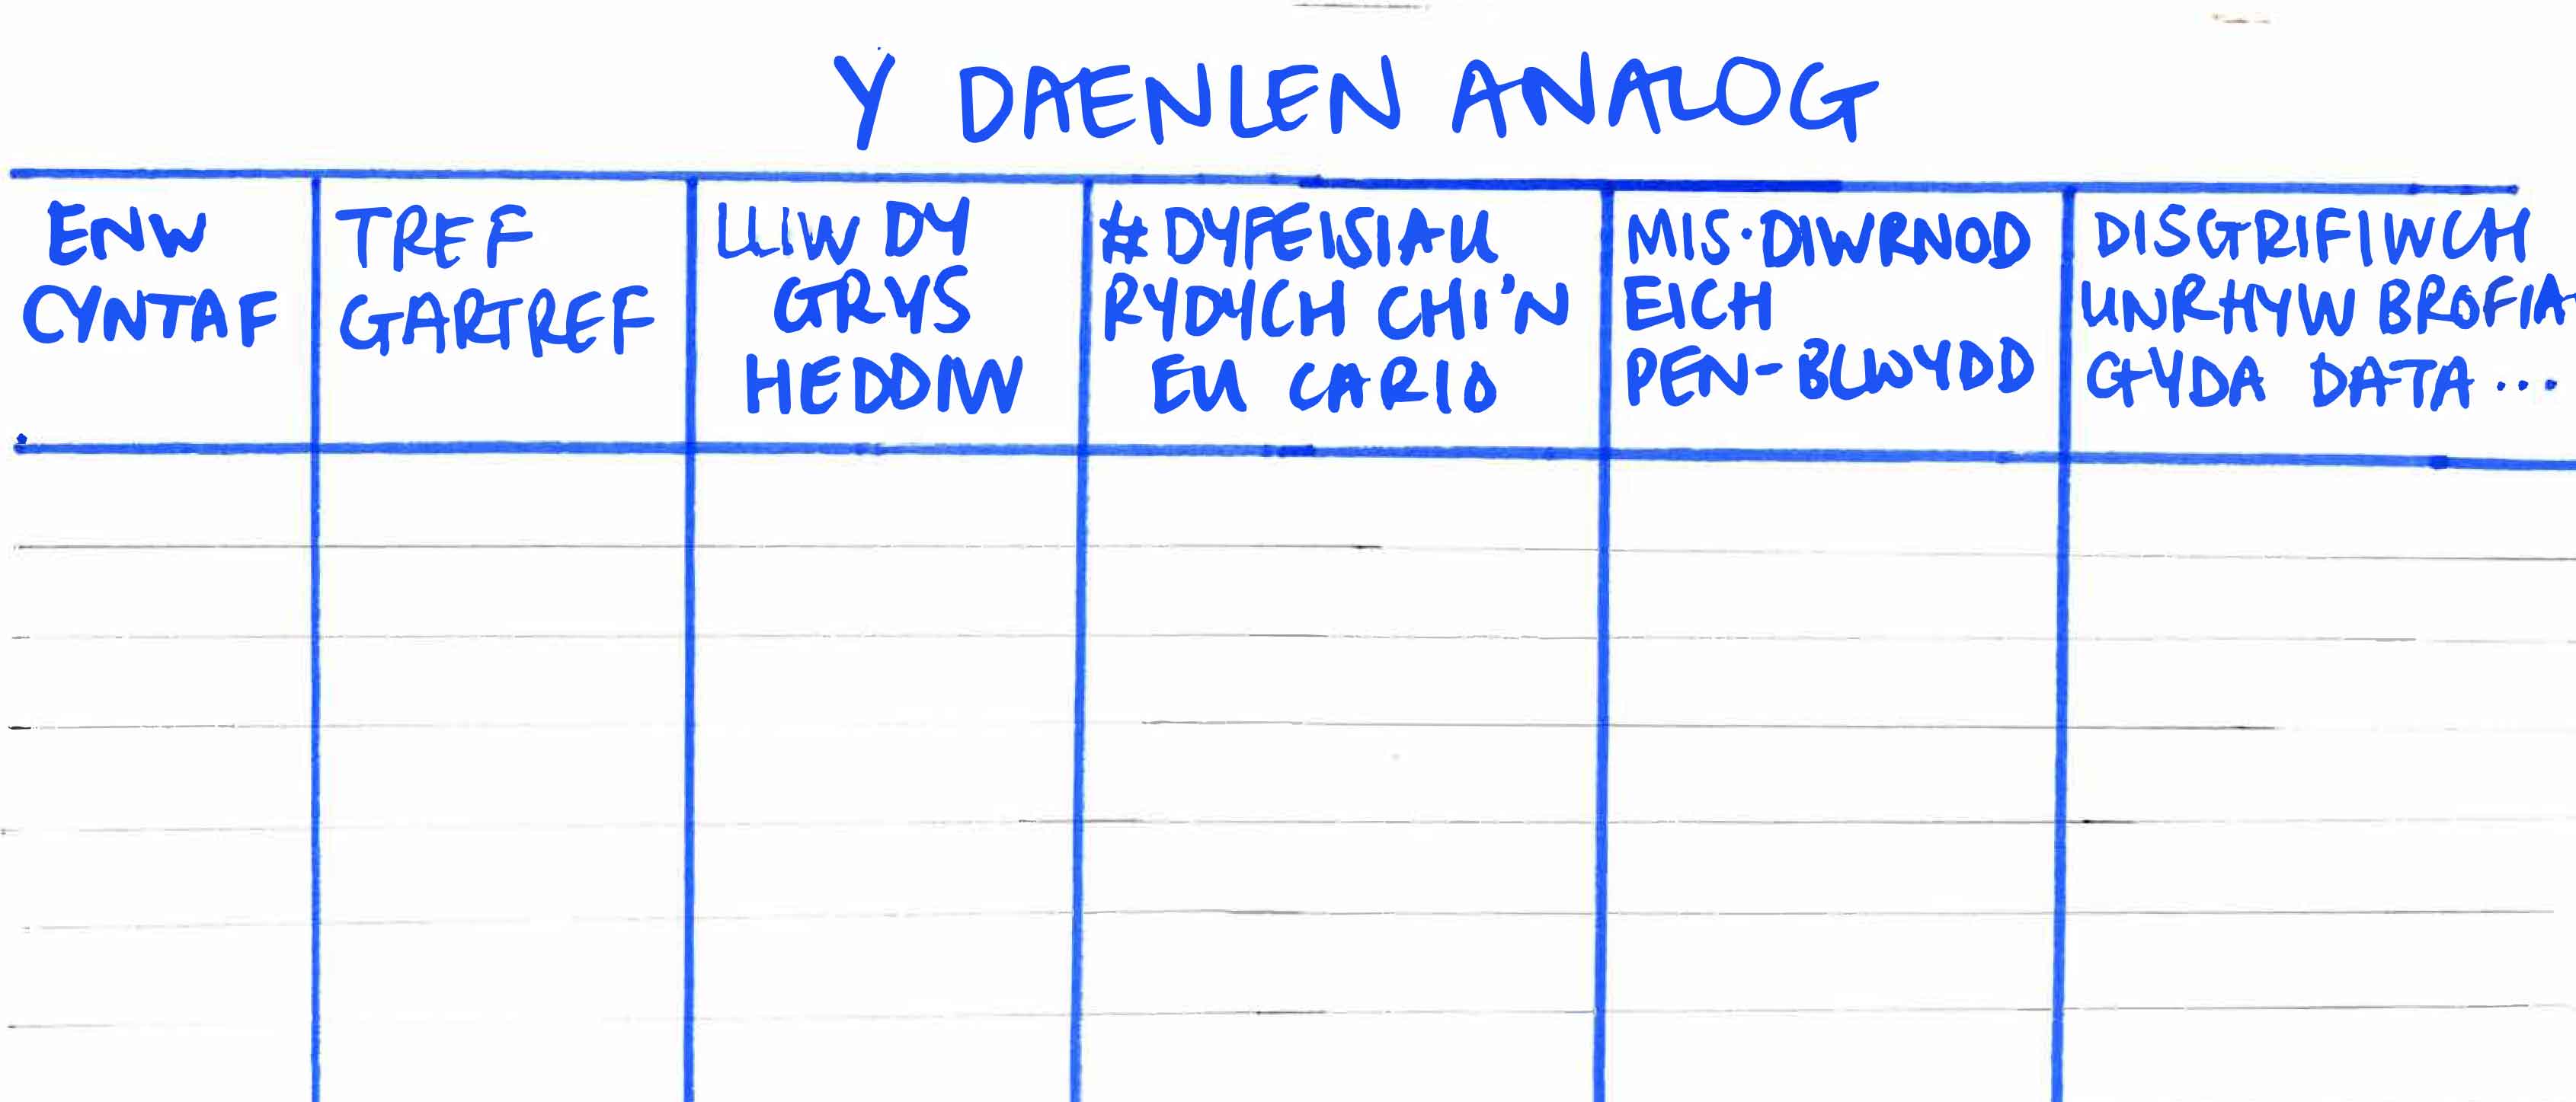 Y DAENLEN ANALOG
ENW
CYNTAF
TREF
GARTREF
LLIW DY
GRYS
HEDDIW
# DYFEISIAU
RYDYCH CHI'N
EU CARIO
MIS·DIWRNOD
EICH
PEN-BLWYDD
DISGRIFIWCH
UNRHYW BROFIA
GYDA DATA...